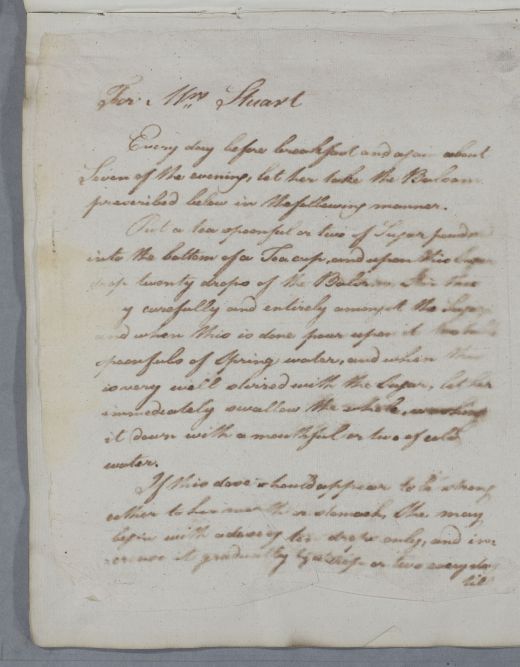 For Mrs Stuart
Every day before breakfast and again about
Seven of the evening, let her take the Balsam
prescribed below in the following manner.
Put a tea spoonful or two of Sugar powder
into the bottom of a Tea cup, and upon this Sugar
drop twenty drops of the Balsam. Stir
y carefully and entirely amongst the Sugar
and when this is done pour upon it
spoonfuls of Spring water, and when this
is very well stirred with the Sugar, let her
immediately swallow the whole, washing
it down with a mouthful or two of cold
water.
If this dose should appear to be strong
either to her mouth or stomach, She may
begin with a dose of ten drops only, and in
crease it gradually by a drop or two every day
till